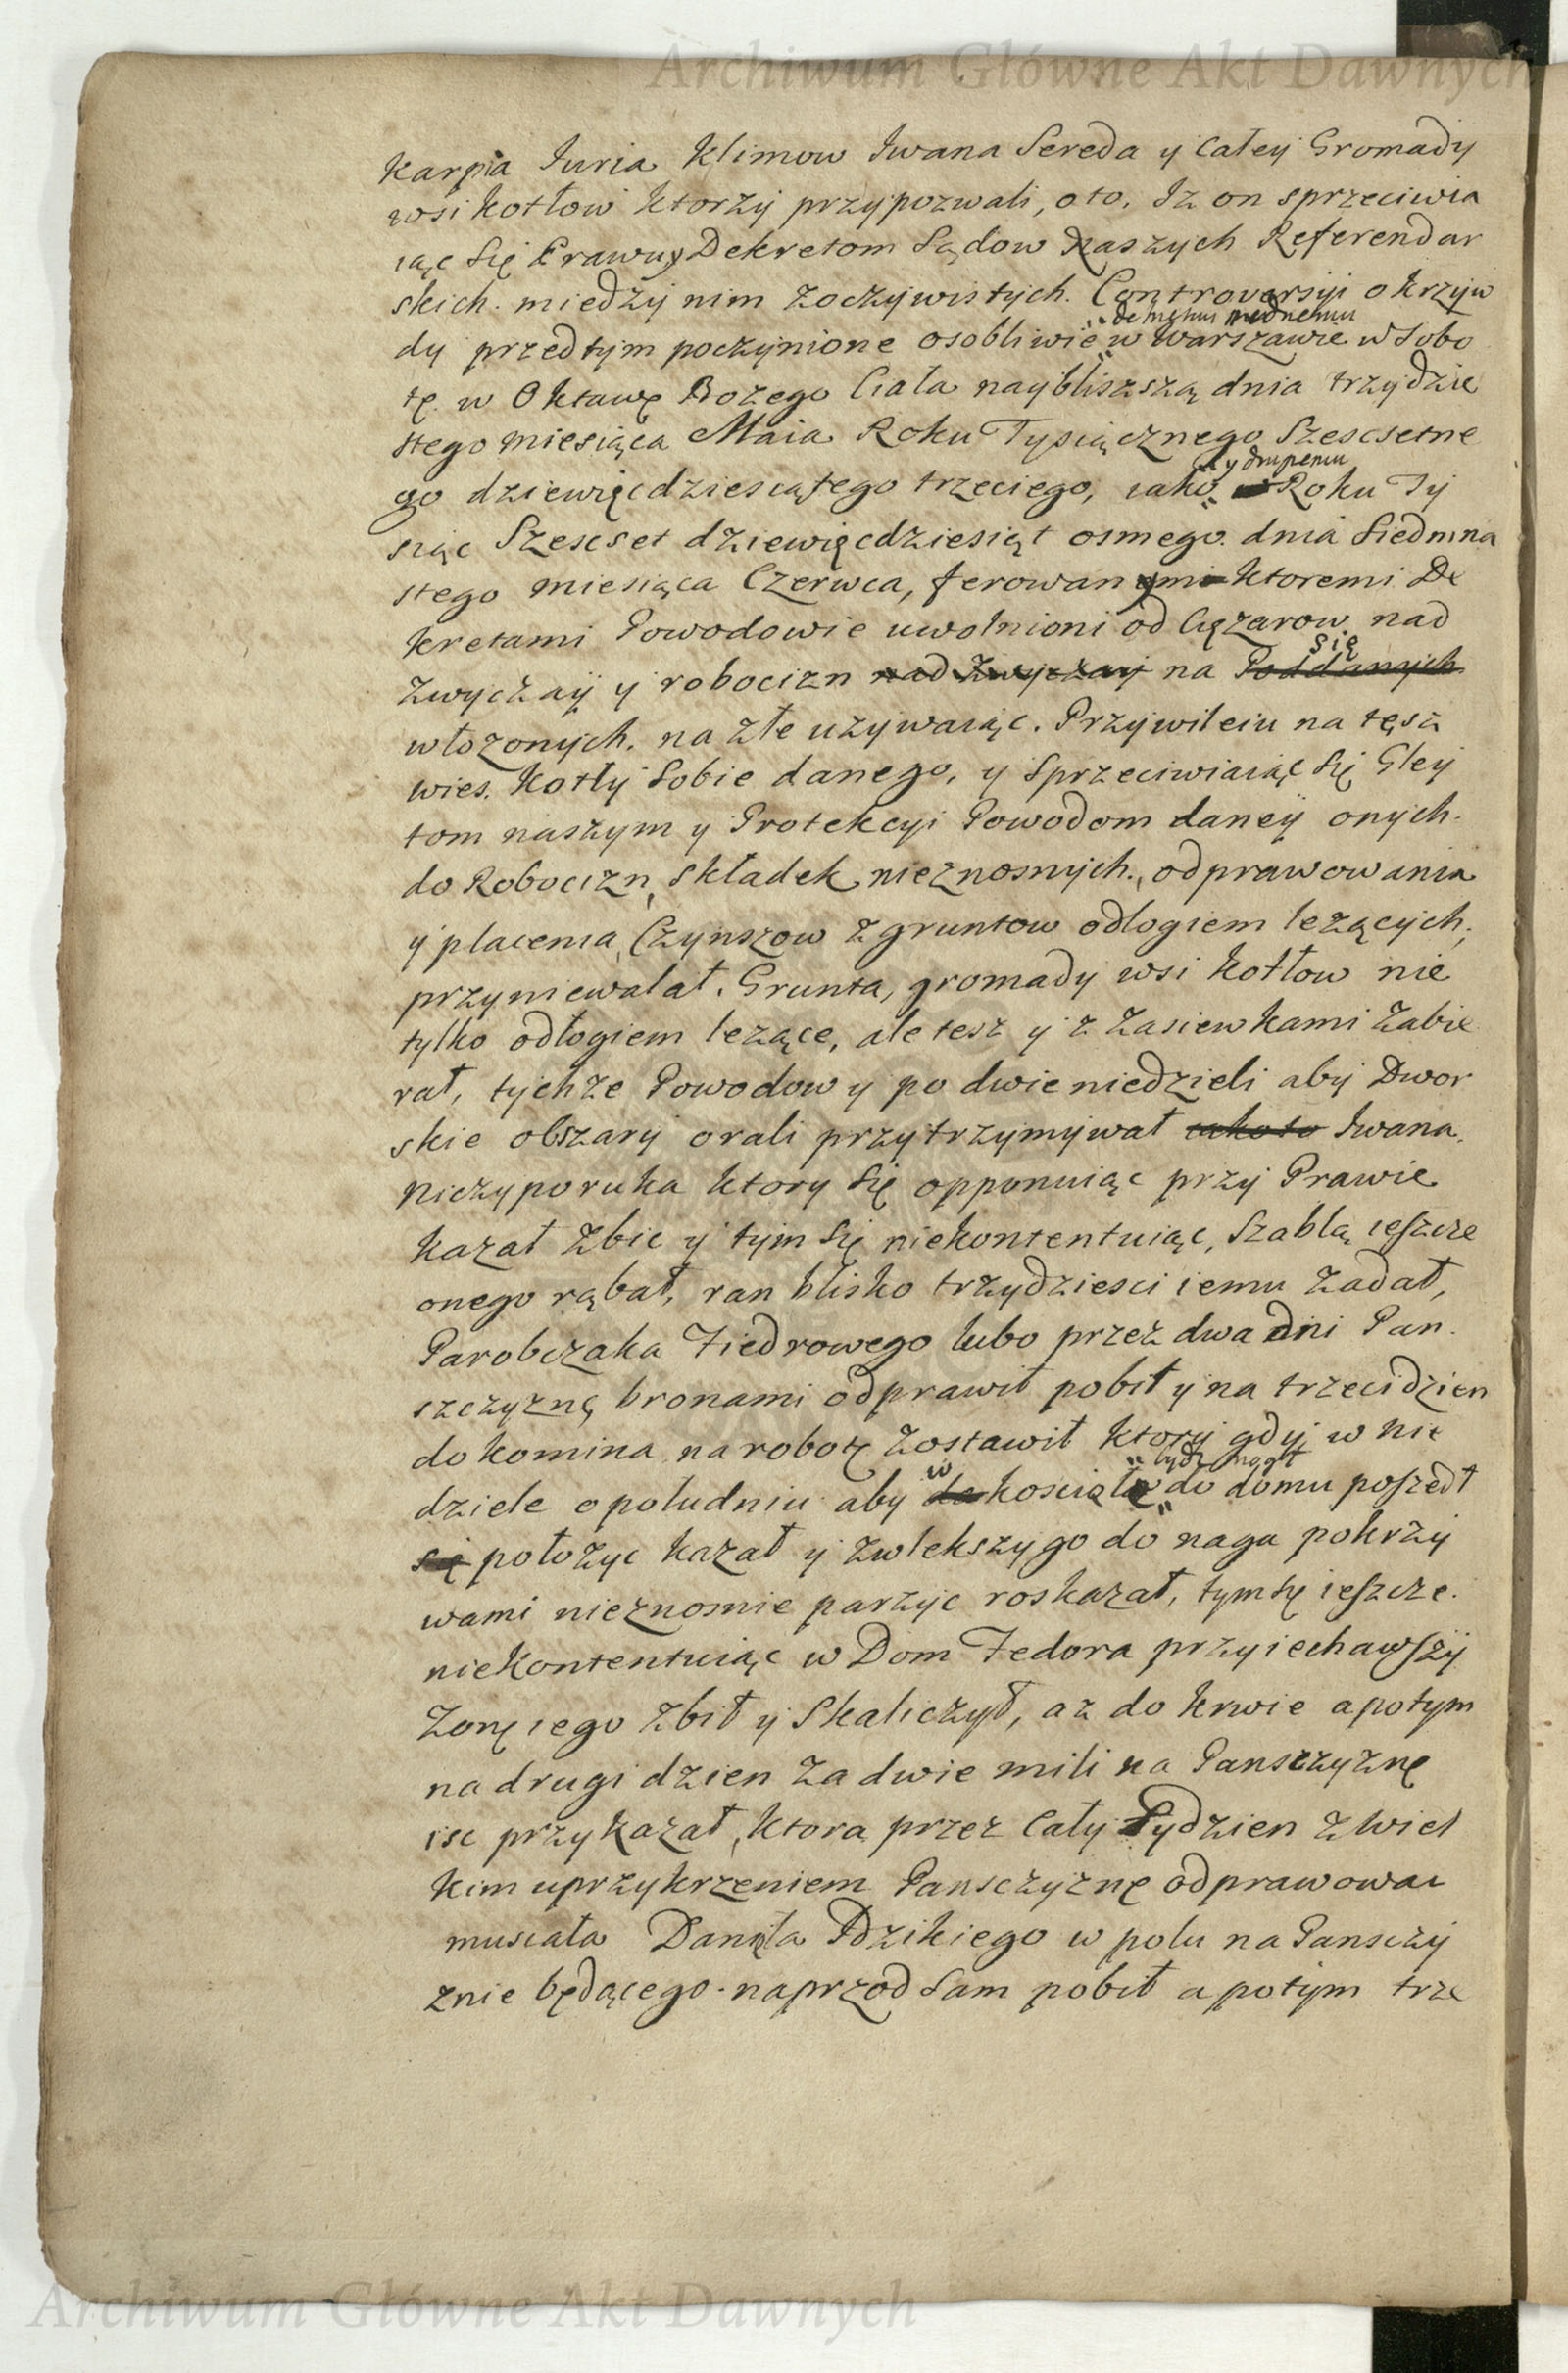 Archiwum Główne Akt Dawnych
Karpia Iuria Klimow Iwana Sereda y Całey Gromady
wsi Kotłow ktorzy przypozwali, oto, Iz on sprzeciwia
iąc się Prawu y Dekretom Sądow Naszych Referendar
skich. miedzy nim zoczywistych. Controversyi o krzyw
dy przedtym poczynione osobliwie w Warszawie w Sobo
tę w Oktawę Bozego Ciała nayblisszszą dnia trzydzie
stego Miesiąca Maia Roku Tysiącznego Szescsetne
y drugiemu
go dziewięcdziesiątego trzeciego, iako Roku Ty
siąc Szescset dziewięcdziesiąt osmego dnia Siedmna
stego Miesiąca Czerwca, ferowanymi ktoremi De
kretami Powodowie uwolnieni od Cięzarow nad
się
zwyczay y robocizn nad zwyczay na Poddanych
włozonych, na złe uzywaiąc. Przywileiu na tęsz
wies. Kotły Sobie danego, y Sprzeciwiaiąc się Gley
tom naszym y Protekcyi Powodom daney onych.
do Robocizn, Składek nieznosnych, odprawowania
y placenia Czynszow z gruntow odlogiem lezących,
przyniewalał. Grunta, gromady wsi Kotłow nie
tylko odłogiem lezące, ale tesz y z Zasiewkami Zabie
rał, tychze Powodow y po dwie niedzieli aby Dwor
skie obszary orali przytrzymywał iako to Iwana
Niczyporuka ktory się opponuiąc przy Prawie
kazał Zbic y tym się niekontentuiąc, Szablą ieszcze
onego rąbał, ran blisko trzydziesci iemu Zadał,
Parobczaka Fiedrowego lubo przez dwa dni Pan
szczyznę bronami odprawił pobił y na trzeci dzien
do komina na robotę Zostawił ktory gdy w nie
w bydz mogł
dziele o poludniu aby do kosciele do domu poszedł
się połozyc kazał y zwlekszy go do naga pokrzy
wami nieznosnie parzyc roskazał, tym się ieszcze
niekontentuiąc w Dom Fedora przyiechawszy
Zonę iego Zbił y Skaliczył, az do krwie a potym
na drugi dzien Za dwie mili na Pansczyznę
isc przykazał, ktora przez Cały Tydzien Zwiel
kim uprzykrzeniem Pansczyznę odprawowac
musiała Daniła Dzikiego w polu na Pansczy
znie będącego naprzod Sam pobił a potym trze
Archiwum Główne Akt Dawnych